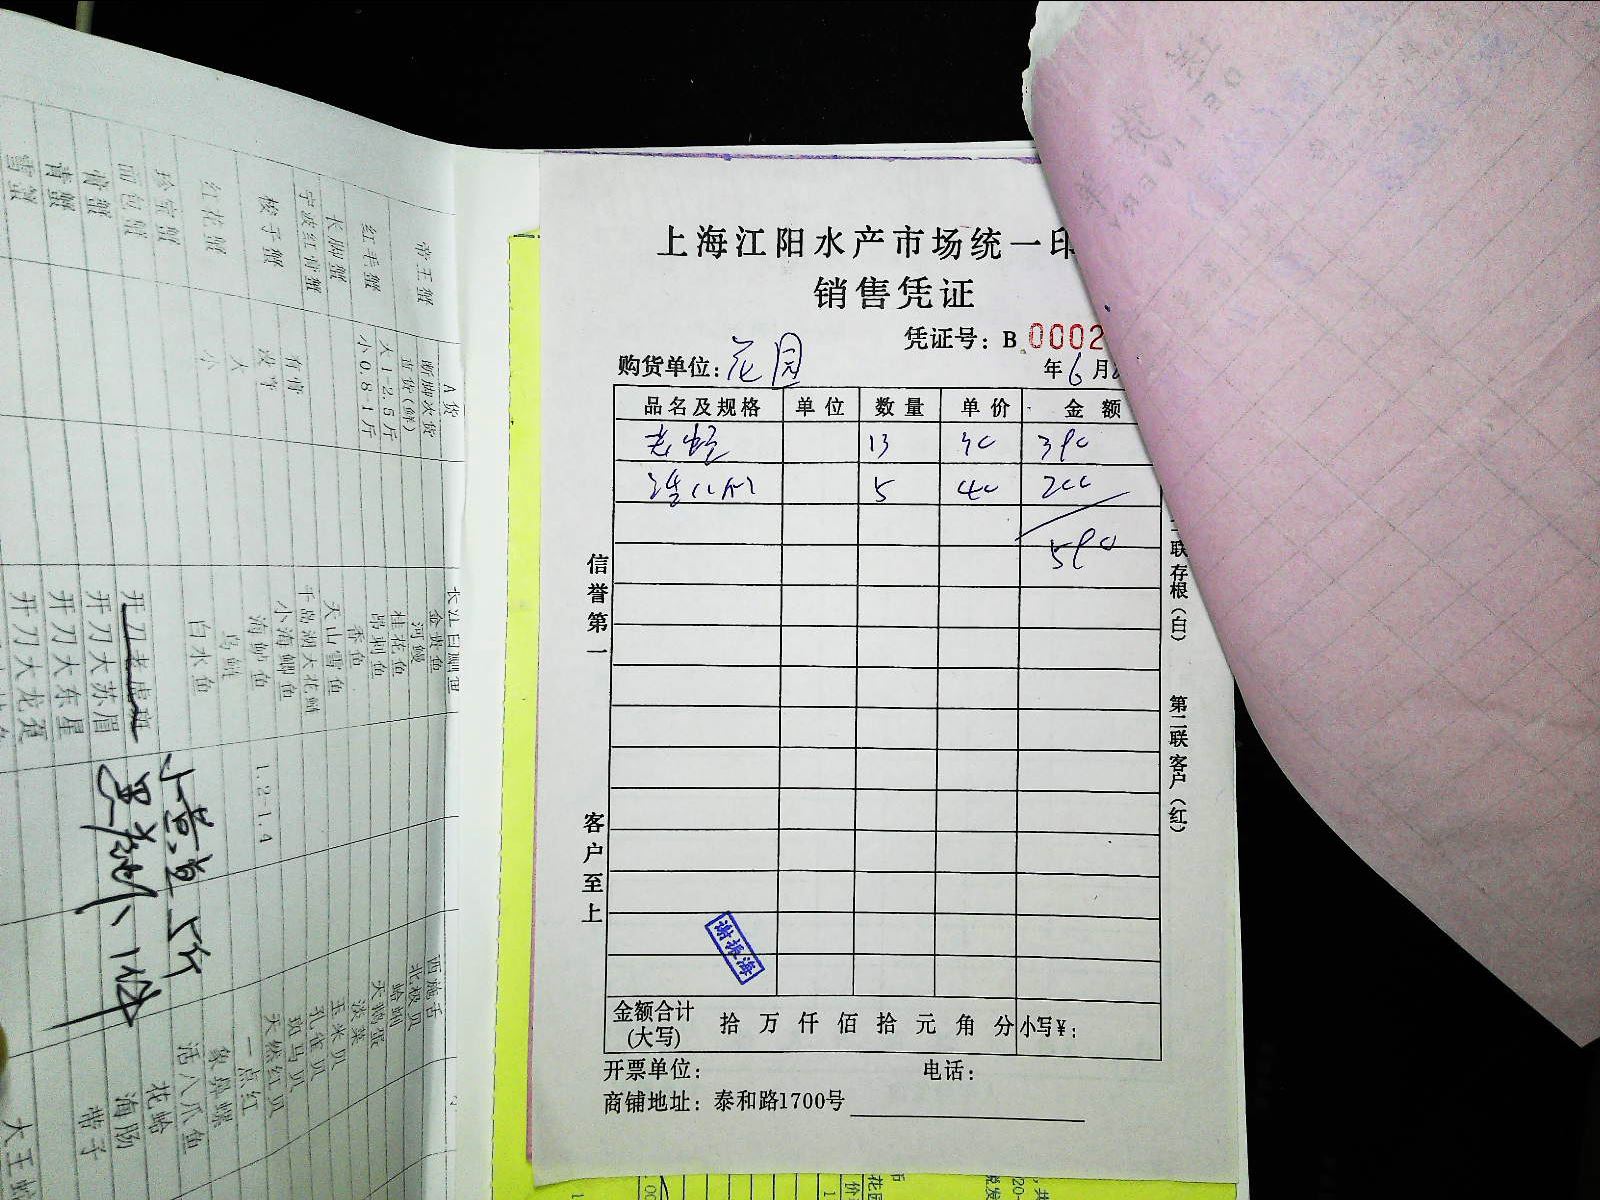 上海江阳水产市场统一印
销售凭证
凭证号：B 0002
购货单位：花园
年6月
品名及规格 单位 数量 单价 金额
13 30 390
5 40 200
590
信誉第一
客户至上
联存根（白）
第二联客户（红）
谢振海
金额合计（大写） 拾 万 仟 佰 拾 元 角 分 小写¥：
开票单位： 电话：
商铺地址：泰和路1700号
A货
帝王蟹 断脚次货
直货(鲜)
红毛蟹 大1-2.5斤
小0.8-1斤
长脚蟹
宁波红膏蟹
梭子蟹 有膏
没字
红花蟹 大
小
珍宝蟹
面包蟹
膏蟹
黄蟹
雪蟹
金黄鱼
河鳗
桂花鱼
昂刺鱼
香鱼
天山雪鱼
千岛湖大花鲢
小海鲫鱼
海鲈鱼 1.2-1.4
乌鲳
白水鱼
开刀老虎斑
开刀大苏眉
开刀大东星
开刀大龙趸
西施舌
北极贝
蛤蜊
天鹅蛋
淡菜
玉米贝
孔雀贝
斑马贝
天然红贝
一点红
象鼻螺
活八爪鱼
花蛤
海肠
带子